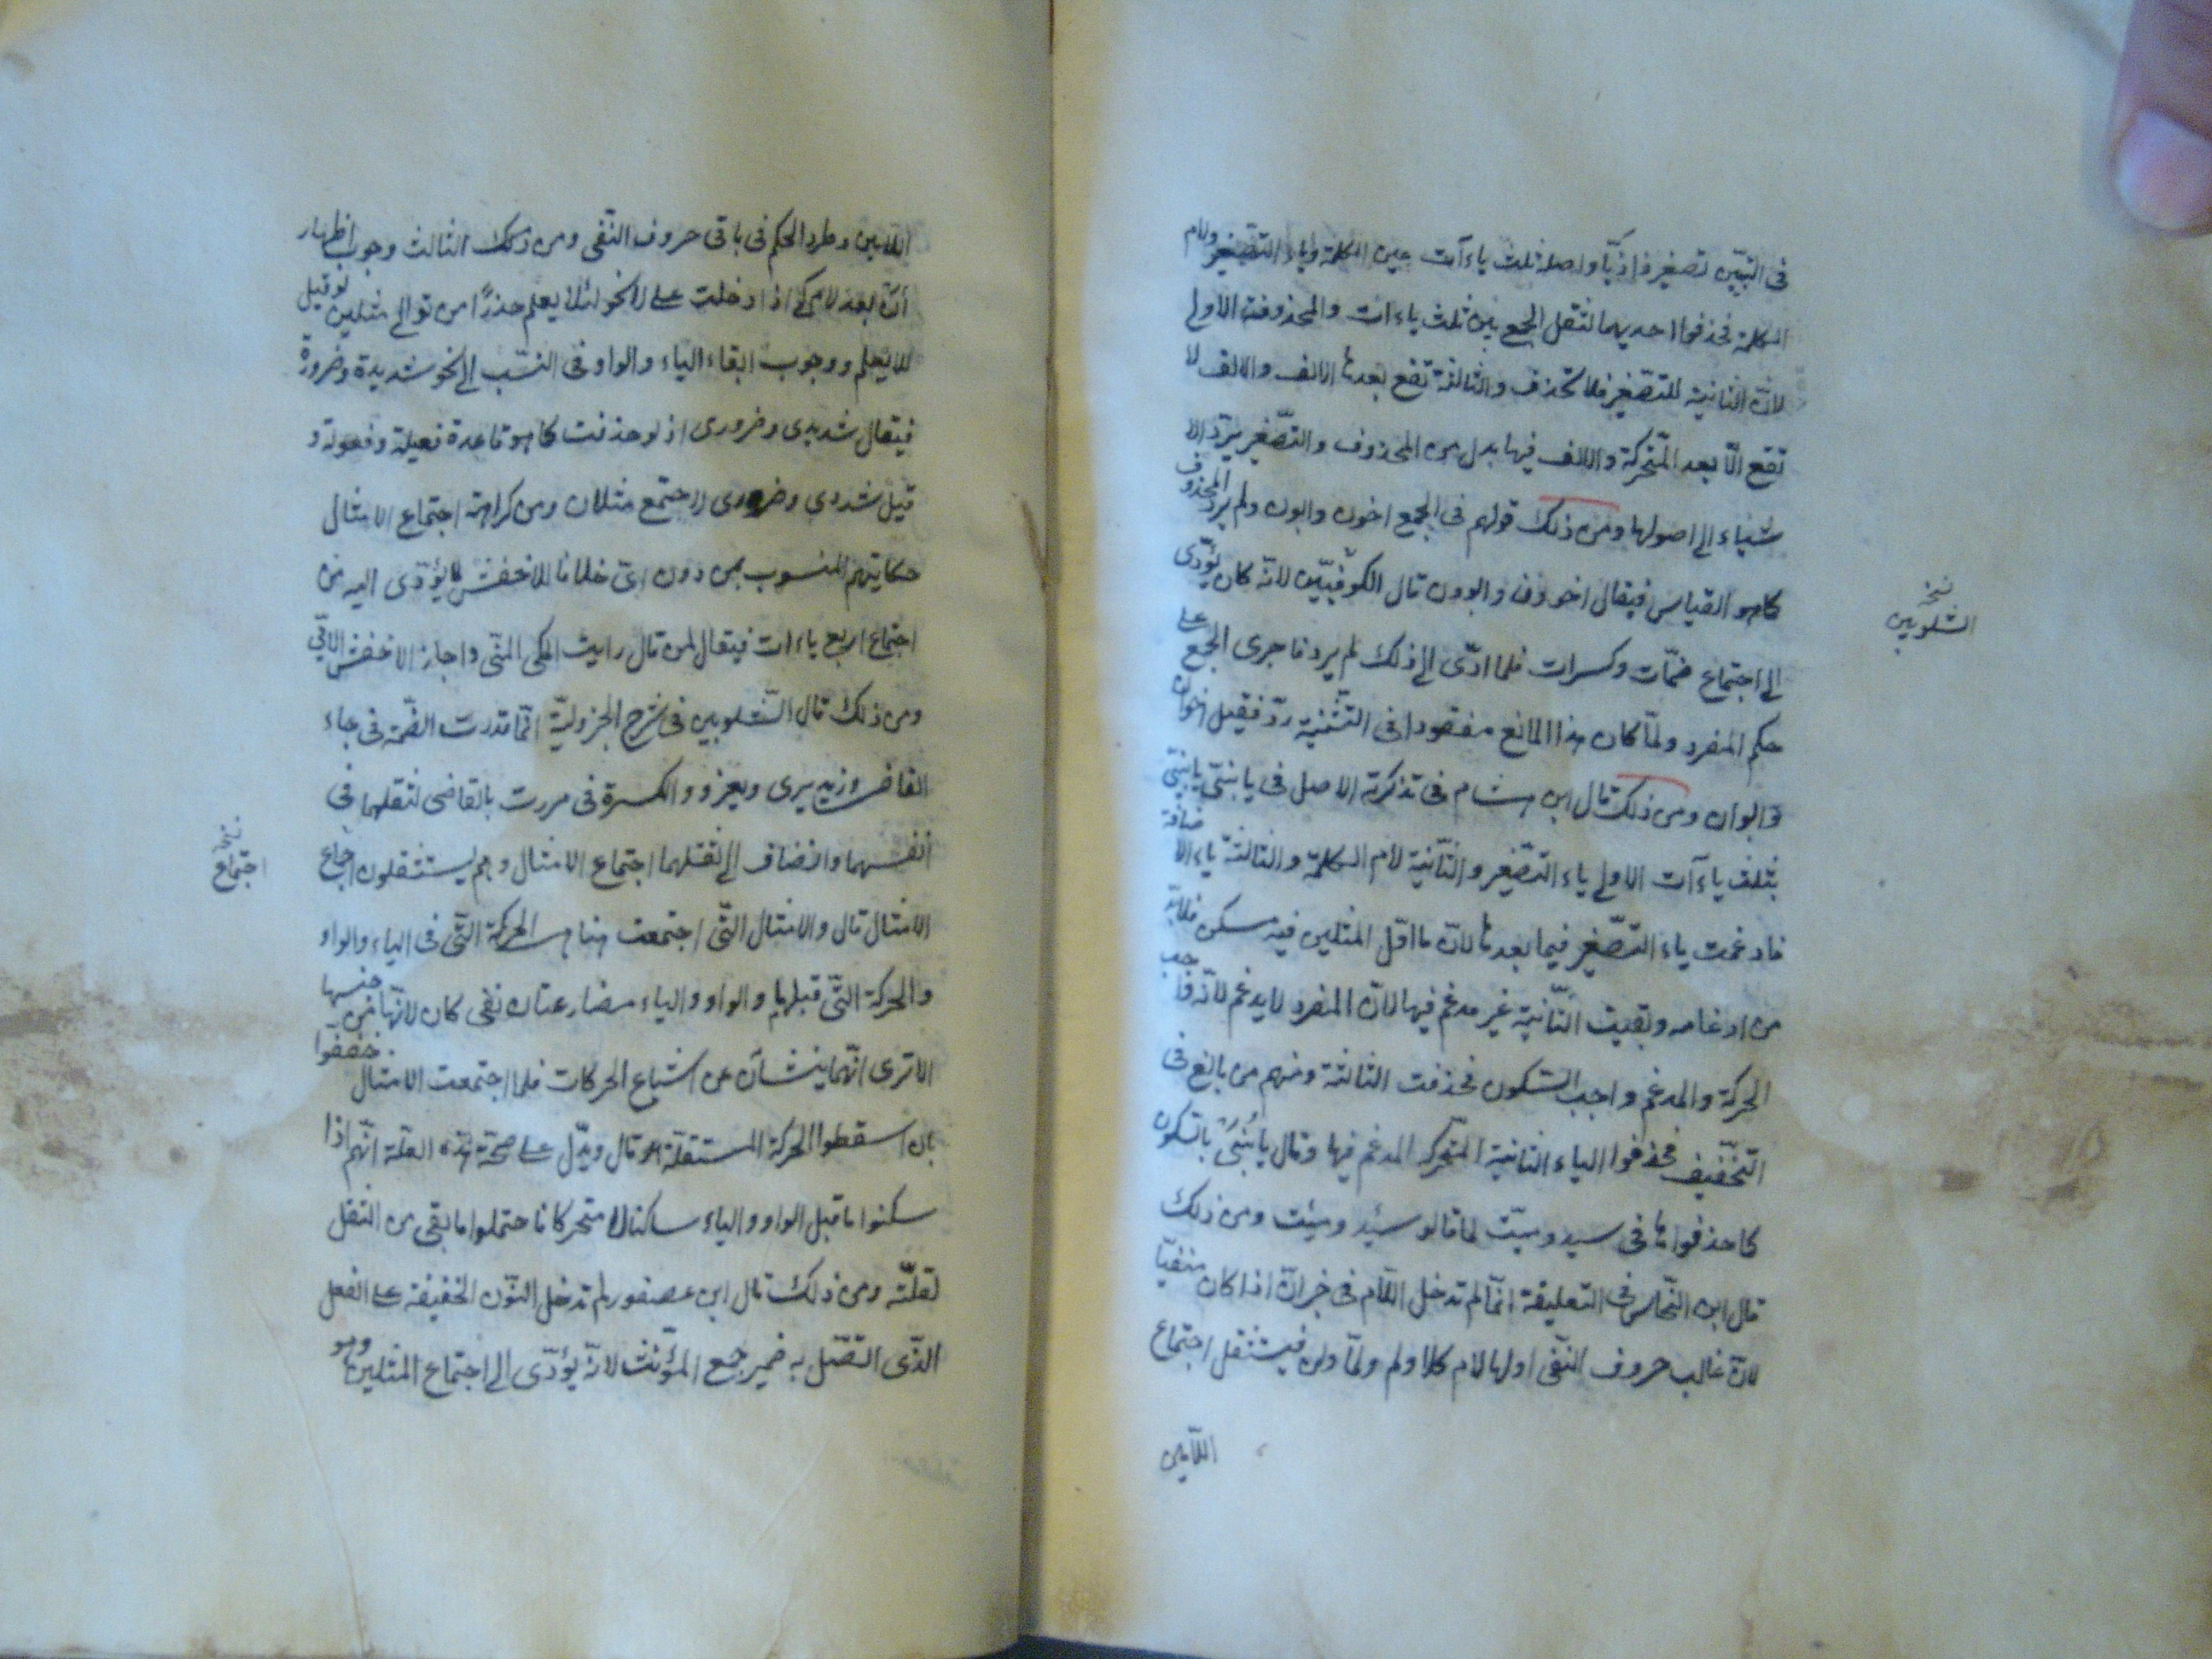 في التبيين تصغير ذا ذيّا واصله ثلث ياءآت عين الكلمة وياء التصغير ولام
الكلمة فحذفوا احديهما لثقل الجمع بين ثلث ياءات والمحذوفة الاولى
لانّ الثانية للتصغير فلا تحذف والثالثة تقع بعدها الالف والالف لا
تقع الّا بعد المتحركة والالف فيها بدل من المحذوف والتصغير يردّ الا
شياء الى اصولها ومن ذلك قولهم في الجمع اخون وابون ولم يردّ المحذوف
كما هو القياس فيقال اخوون وابوون قال الكوفيين لانّه كان يؤدّى
الى اجتماع ضمّات وكسرات فلما ادّى الى ذلك لم يرد فاجرى الجمع على
حكم المفرد ولمّا كان هذا المانع مفقودا في التثنية ردّ فقيل اخوان
وابوان ومن ذلك قال ابن هشام في تذكرته الاصل في يا بنىّ يا بنيىّ
بثلث ياءآت الاولى ياء التصغير والثانية لام الكلمة والثالثة ياء الا ضافة
فادغمت ياء التصغير فيما بعدها لانّ ما اوّل المثلين فيه مسكن فلابدّ
من ادغامه وبقيت الثانية غير مدغم فيها لانّ المفرد لا يدغم لانّه واجب
الحركة والمدغم واجب السّكون فحذفت الثالثة ومنهم من بالغ في
التخفيف فحذفوا الياء الثانية المتحركة المدغم فيها وقال يا بُنَىْ بالسكون
كما حذفوها في سيد وميّت لما قالو سيْد وميْت ومن ذلك
قال ابن النحّاس في التعليقة انّما لم تدخل اللّام في خبر انّ اذا كان منفيّا
لانّ غالب حروف النفى اولها لام كلا ولم ولمّا ولن فيستثقل اجتماع
اللّامين
نسخة
الشلوبين
اللّامين وطرد الحكم في باقى حروف النّفى ومن ذلك الثالث وجوب اظهار
انّ بعد لام كى اذا دخلت على لا نحو لئلا يعلم حذرًا من توالى مثلين لو قيل
للا يعلم ووجوب ابقاء الياء والواو في النسب الى نحو شديدة وضرورة
فيقال شديدى وضرورى اذ لو حذفت كما هو قاعدة فعيلة وفعولة و
قيل شددى وضررى لاجتمع مثلان ومن كراهة اجتماع الامثال
حكايتهم المنسوب بمن دون اىّ خلافا للاخفش لما يؤدّى اليه من
اجتماع اربع ياءات فيقال لمن قال رايت المكى المنّى واجاز الاخفش الايّى
ومن ذلك قال الشّلوبين في شرح الجزوليّة انّما قدرت الضّمة في جاء
القاضى وزيد يرى ويغزو والكسرة في مررت بالقاضى لثقلهما في
انفسهما وانضاف الى ثقلهما اجتماع الامثال وهم يستثقلون اجماع
الامثال قال والامثال التّى اجتمعت هنا هى الحركة التّى في الياء والواو
والحركة التّى قبلهما والواو والياء مضارعتان نفى كان لانّها من جنسها
الا ترى انّهما ينشأن عن اشباع الحركات فلما اجتمعت الامثال خففوا
بان اسقطوا الحركة المستثقلة قال ويدّل على صحّة هذه العلّة انّهم اذا
سكنوا ما قبل الواو والياء ساكنا لا متحركا فاحتملوا ما بقى من الثقل
لقلّته ومن ذلك قال ابن عصفور لم تدخل النّون الخفيفة على الفعل
الذّى اتّصل به ضمير جمع المؤنث لانّه يؤدّى الى اجتماع المثلين وهو
نسخة
اجتماع